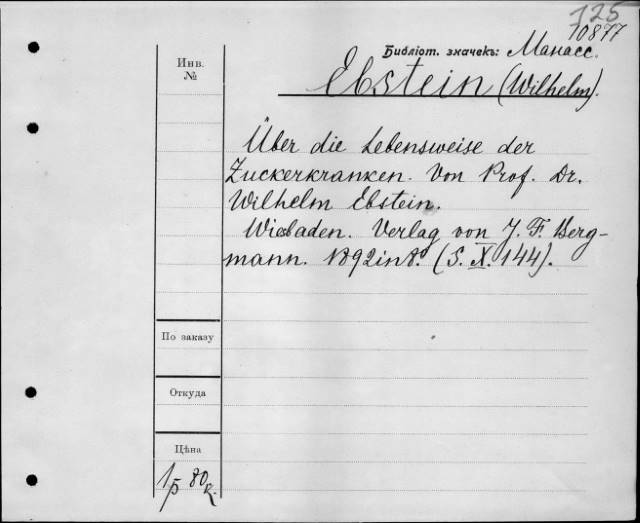 125
10877
Библіот. значекъ: Манасс.
Инв.
№
Ebstein (Wilhelm).
Über die Lebensweise der
Zuckerkranken. Von Prof. Dr.
Wilhelm Ebstein.
Wiesbaden. Verlag von J. F. Berg-
mann. 1892 in 8º. (S. X. 144).
По заказу
Откуда
Цѣна
1 р 80 к.